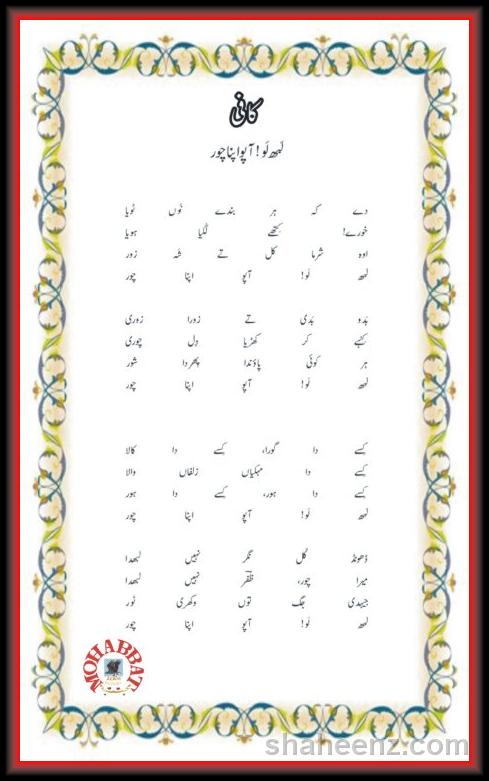 کافی
لبھ لَو! آپو اپنا چور
دے کہ ہر بندے نوں ٹویا
خورے! کتھے لُکیا ہویا
اوہ شرما کل تے شہ زور
لبھ لَو! آپو اپنا چور
بدو بدی تے زورا زوری
کہنے کر کھڑیا دِل چوری
ہر کوئی پاؤندا پھردا شور
لبھ لَو! آپو اپنا چور
کِسے دا گورا، کِسے دا کالا
کِسے دا مہکیاں زلفاں والا
کِسے دا ہور، کِسے دا ہور
لبھ لَو! آپو اپنا چور
ڈھونڈ کُل نگر نہیں لبھدا
میرا چور، ظفرؔ نہیں لبھدا
جیہدی جگ توں وکھری ٹور
لبھ لَو! آپو اپنا چور
MOHABBAT
shaheenz.com